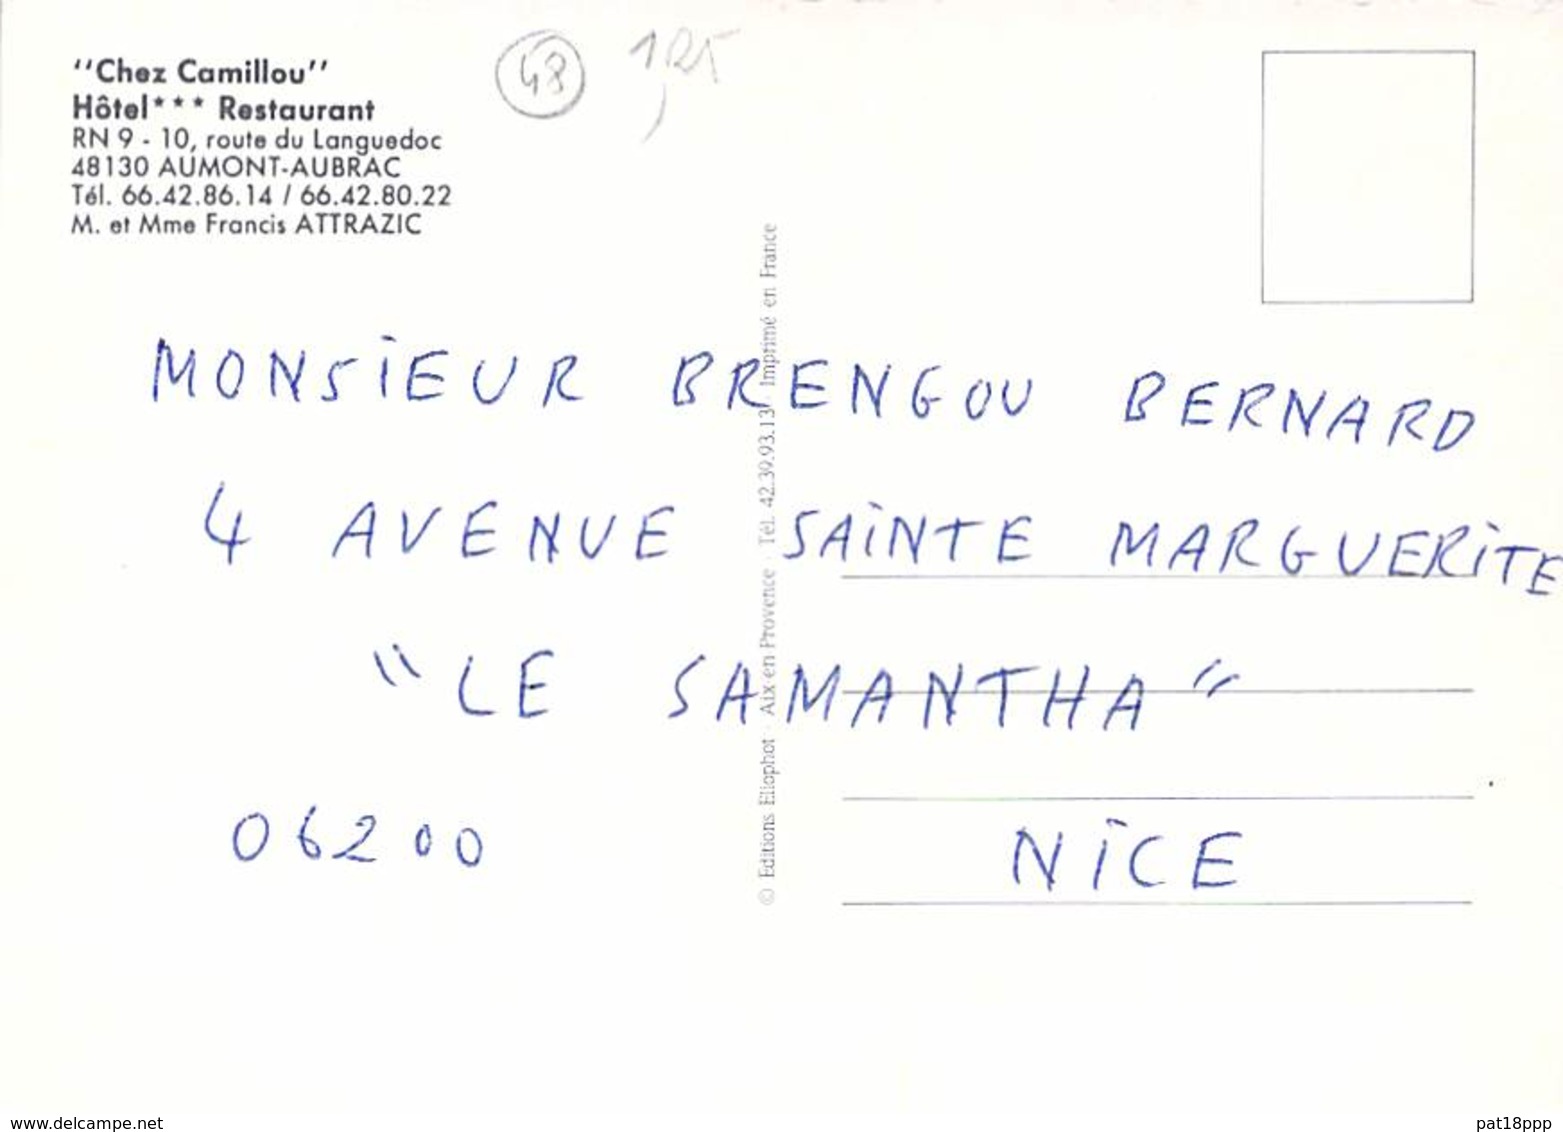 ''Chez Camillou''
Hôtel*** Restaurant
RN 9 - 10, route du Languedoc
48130 AUMONT-AUBRAC
Tél. 66.42.86.14 / 66.42.80.22
M. et Mme Francis ATTRAZIC
48
1,25
MONSiEUR BRENGOU BERNARD
4 AVENUE SAiNTE MARGUERiTE
"LE SAMANTHA"
06200 NiCE
© Editions Eliophot · Aix en Provence · Tél. 42.39.93.13 · Imprimé en France
www.delcampe.net
pat18ppp